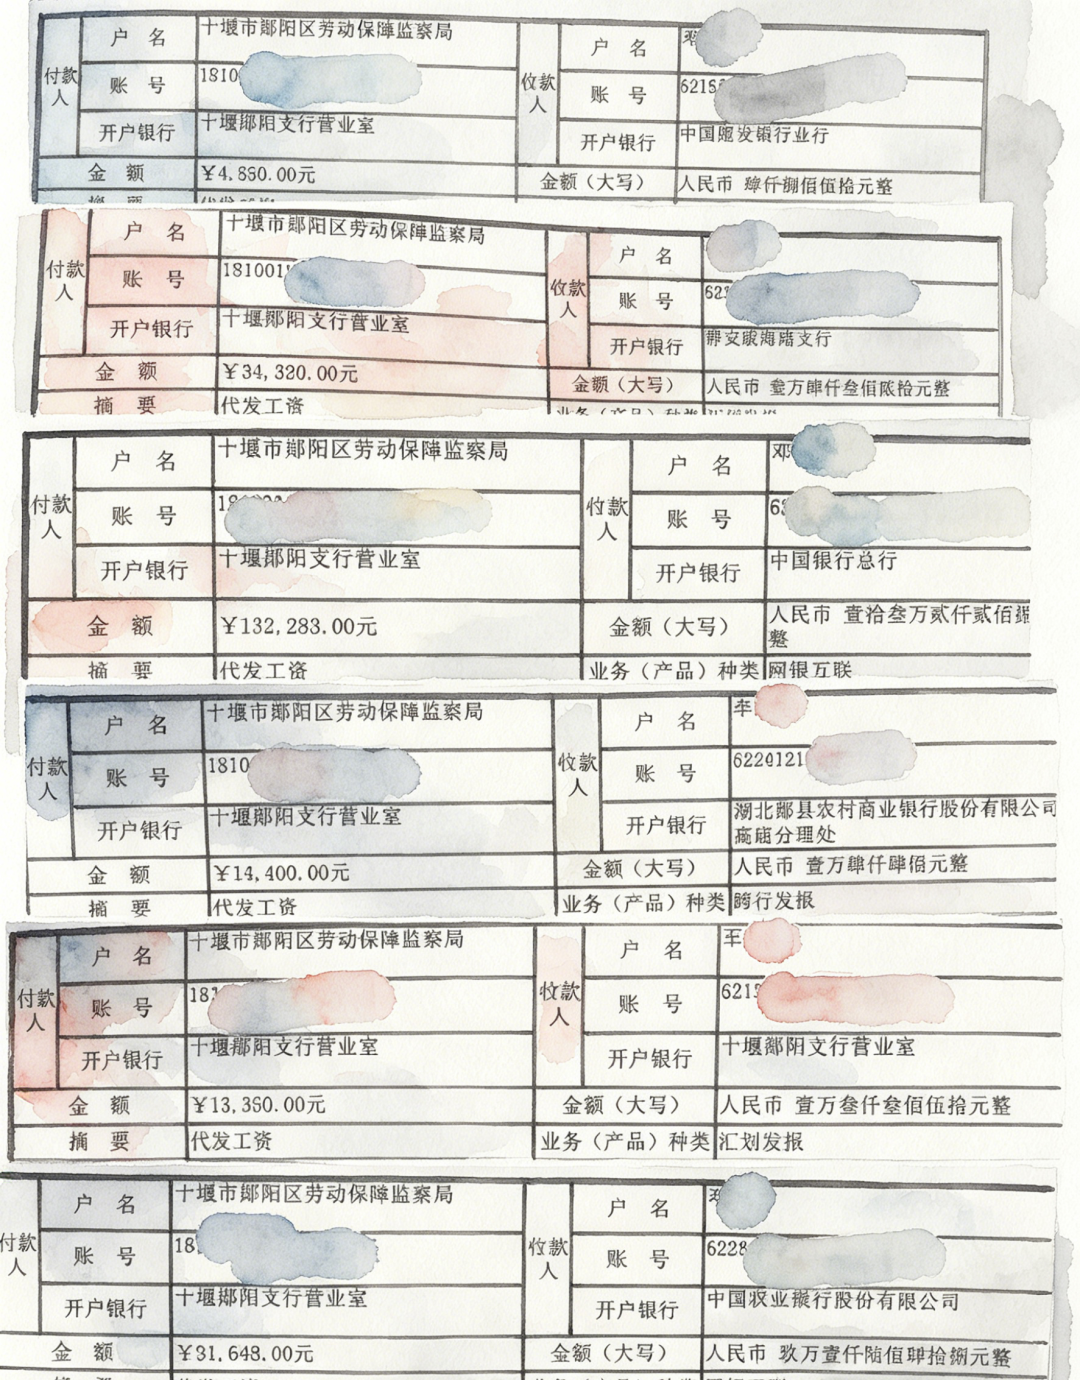 付款人 户 名 十堰市郧阳区劳动保障监察局 收款人 户 名
账 号 1810 账 号 6215
开户银行 十堰郧阳支行营业室 开户银行 中国 行业行
金 额 ¥4,850.00元 金额（大写） 人民币 仟捌佰伍拾元整
摘 要
付款人 户 名 十堰市郧阳区劳动保障监察局 收款人 户 名
账 号 181001 账 号 62
开户银行 十堰郧阳支行营业室 开户银行 支行
金 额 ¥34,320.00元 金额（大写） 人民币 叁万肆仟叁佰 拾元整
摘 要 代发工资 业务（产品）种类
付款人 户 名 十堰市郧阳区劳动保障监察局 收款人 户 名 邓
账 号 18 账 号 6
开户银行 十堰郧阳支行营业室 开户银行 中国银行总行
金 额 ¥132,283.00元 金额（大写） 人民币 壹拾叁万贰仟贰佰
整
摘 要 代发工资 业务（产品）种类 网银互联
付款人 户 名 十堰市郧阳区劳动保障监察局 收款人 户 名 李
账 号 1810 账 号 6220121
开户银行 十堰郧阳支行营业室 开户银行 湖北郧县农村商业银行股份有限公司
分理处
金 额 ¥14,400.00元 金额（大写） 人民币 壹万肆仟肆佰元整
摘 要 代发工资 业务（产品）种类 跨行发报
付款人 户 名 十堰市郧阳区劳动保障监察局 收款人 户 名
账 号 181 账 号 6215
开户银行 十堰郧阳支行营业室 开户银行 十堰郧阳支行营业室
金 额 ¥13,350.00元 金额（大写） 人民币 壹万叁仟叁佰伍拾元整
摘 要 代发工资 业务（产品）种类 汇划发报
付款人 户 名 十堰市郧阳区劳动保障监察局 收款人 户 名
账 号 18 账 号 6228
开户银行 十堰郧阳支行营业室 开户银行 中国 业银行股份有限公司
金 额 ¥31,648.00元 金额（大写） 人民币 万壹仟陆佰肆拾捌元整